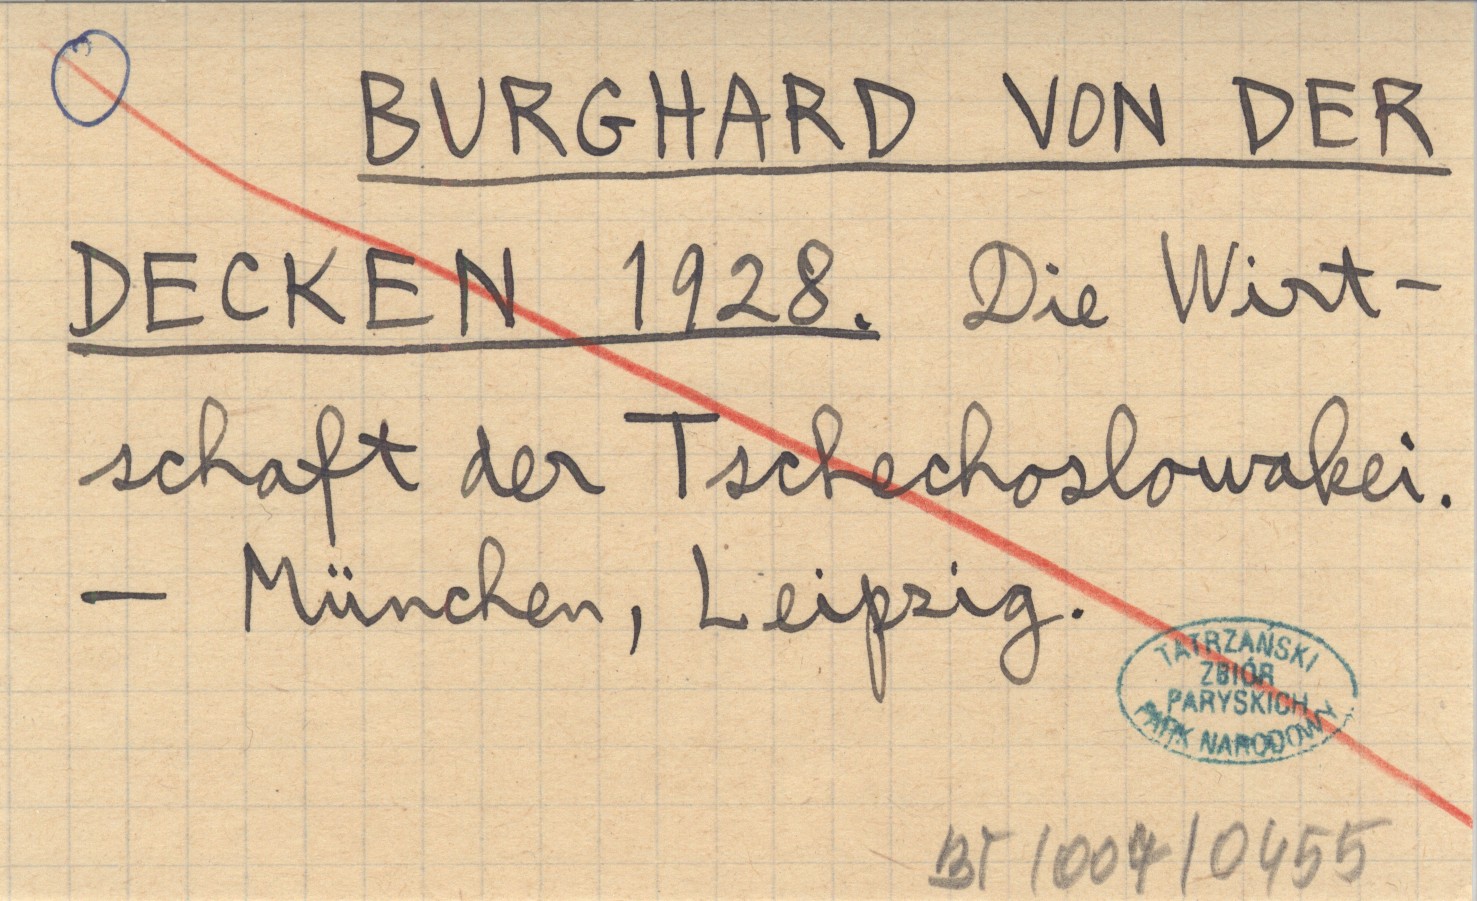 3
BURGHARD VON DER
DECKEN 1928. Die Wirt-
schaft der Tschechoslowakei.
— München, Leipzig.
TATRZAŃSKI
ZBIÓR
PARYSKICH
PARK NARODOWY
BT /004/0455